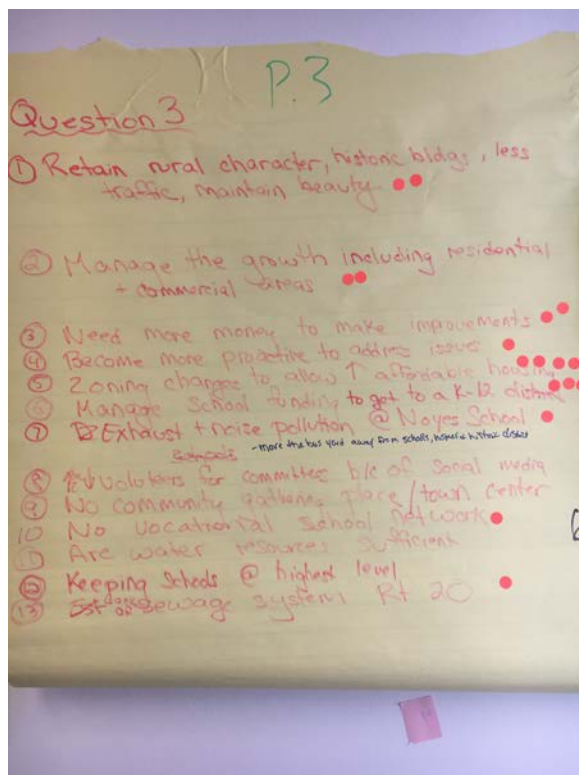 P.3
Question 3
① Retain rural character, historic bldgs, less
traffic, maintain beauty
② Manage the growth including residential
+ commercial areas
③ Need more money to make improvements
④ Become more proactive to address issues
⑤ Zoning changes to allow ↑ affordable housing
⑥ Manage School funding to get to a K-12 district
⑦ Exhaust + noise pollution @ Noyes School
- move the bus yard away from schools, historic district
Schools
⑧ ↓ Volunteers for committees b/c of Social media
⑨ No community gathering place/town center
10 No vocational school network
⑪ Are water resources sufficient
⑫ Keeping Schools @ highest level
⑬ Sewage system Rt 20